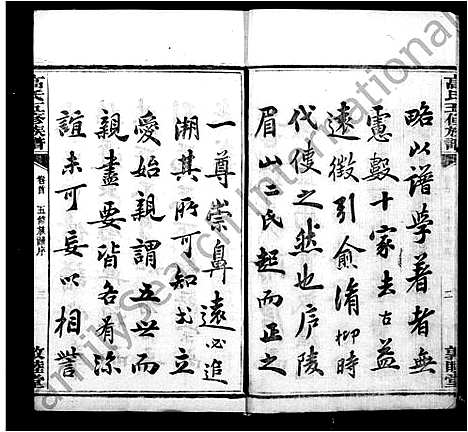 高氏五修族譜
略以譜學著者無
慮數十家去古益
遠徵引愈淆抑時
代使之然也廬陵
眉山二氏起而正之
二
敦睦堂
一尊崇鼻遠必追
溯其所可知出立
愛始親謂五世而
親盡要皆各有深
誼未可妄以相訾
高氏五修族譜
卷首 五修族譜序
三
敦睦堂
FamilySearch International